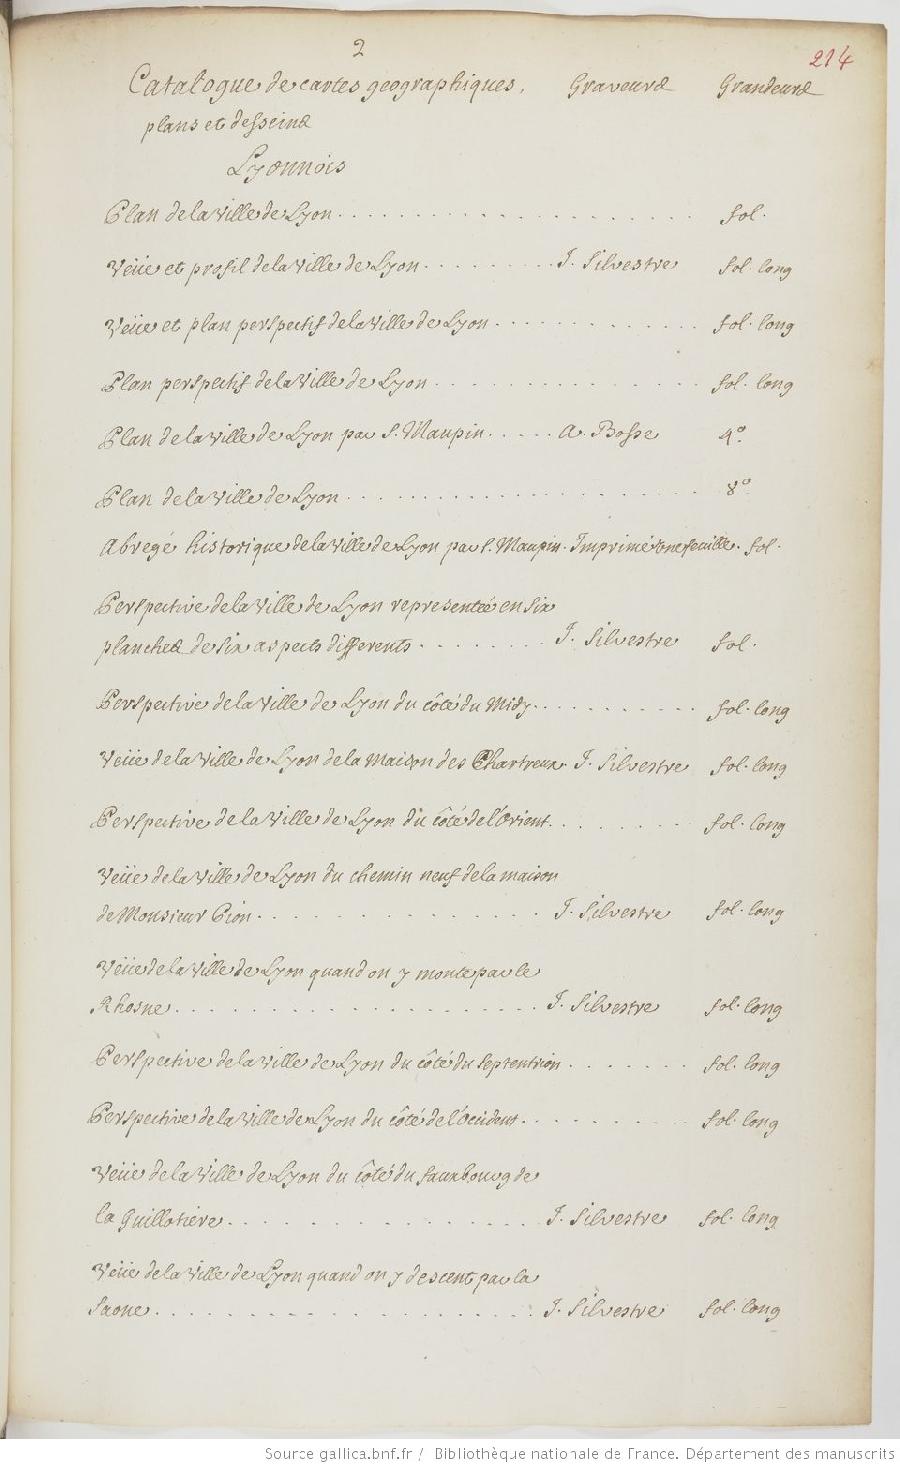 2
214
Catalogue de cartes geographiques, Graveurs Grandeurs
plans et desseins
Lyonnois
Plan de la Ville de Lyon. fol.
Veüe et profil de la Ville de Lyon. I. Silvestre fol. long
Veüe et plan perspectif de la Ville de Lyon. fol. long
Plan perspectif de la Ville de Lyon. fol. long
Plan de la Ville de Lyon par S. Maupin. A. Bosse 4º
Plan de la Ville de Lyon. 8º
Abregé historique de la Ville de Lyon par S. Maupin. Imprimé une feuille. fol.
Perspective de la Ville de Lyon representée en six
planches de six aspects differents. I. Silvestre fol.
Perspective de la Ville de Lyon du côté du Midy. fol. long
Veüe de la Ville de Lyon de la Maison des Chartreux. I. Silvestre fol. long
Perspective de la Ville de Lyon du côté de l'Orient. fol. long
Veüe de la Ville de Lyon du chemin neuf de la maison
de Monsieur Pion. I. Silvestre fol. long
Veüe de la Ville de Lyon quand on y monte par le
Rhosne. I. Silvestre fol. long
Perspective de la Ville de Lyon du côté du Septentrion. fol. long
Perspective de la Ville de Lyon du côté de l'Occident. fol. long
Veüe de la Ville de Lyon du côté du faurbourg de
la Guillotiere. I. Silvestre fol. long
Veüe de la Ville de Lyon quand on y descent par la
Saone. I. Silvestre fol. long
Source gallica.bnf.fr / Bibliothèque nationale de France. Département des manuscrits